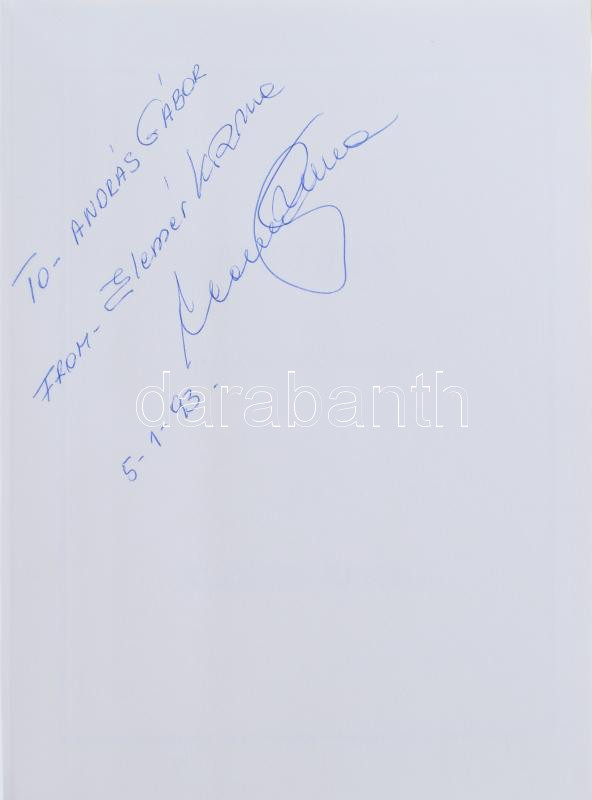 TO - ANDRÁS GÁBOR
FROM - Elemér
5-1-93.
darabanth